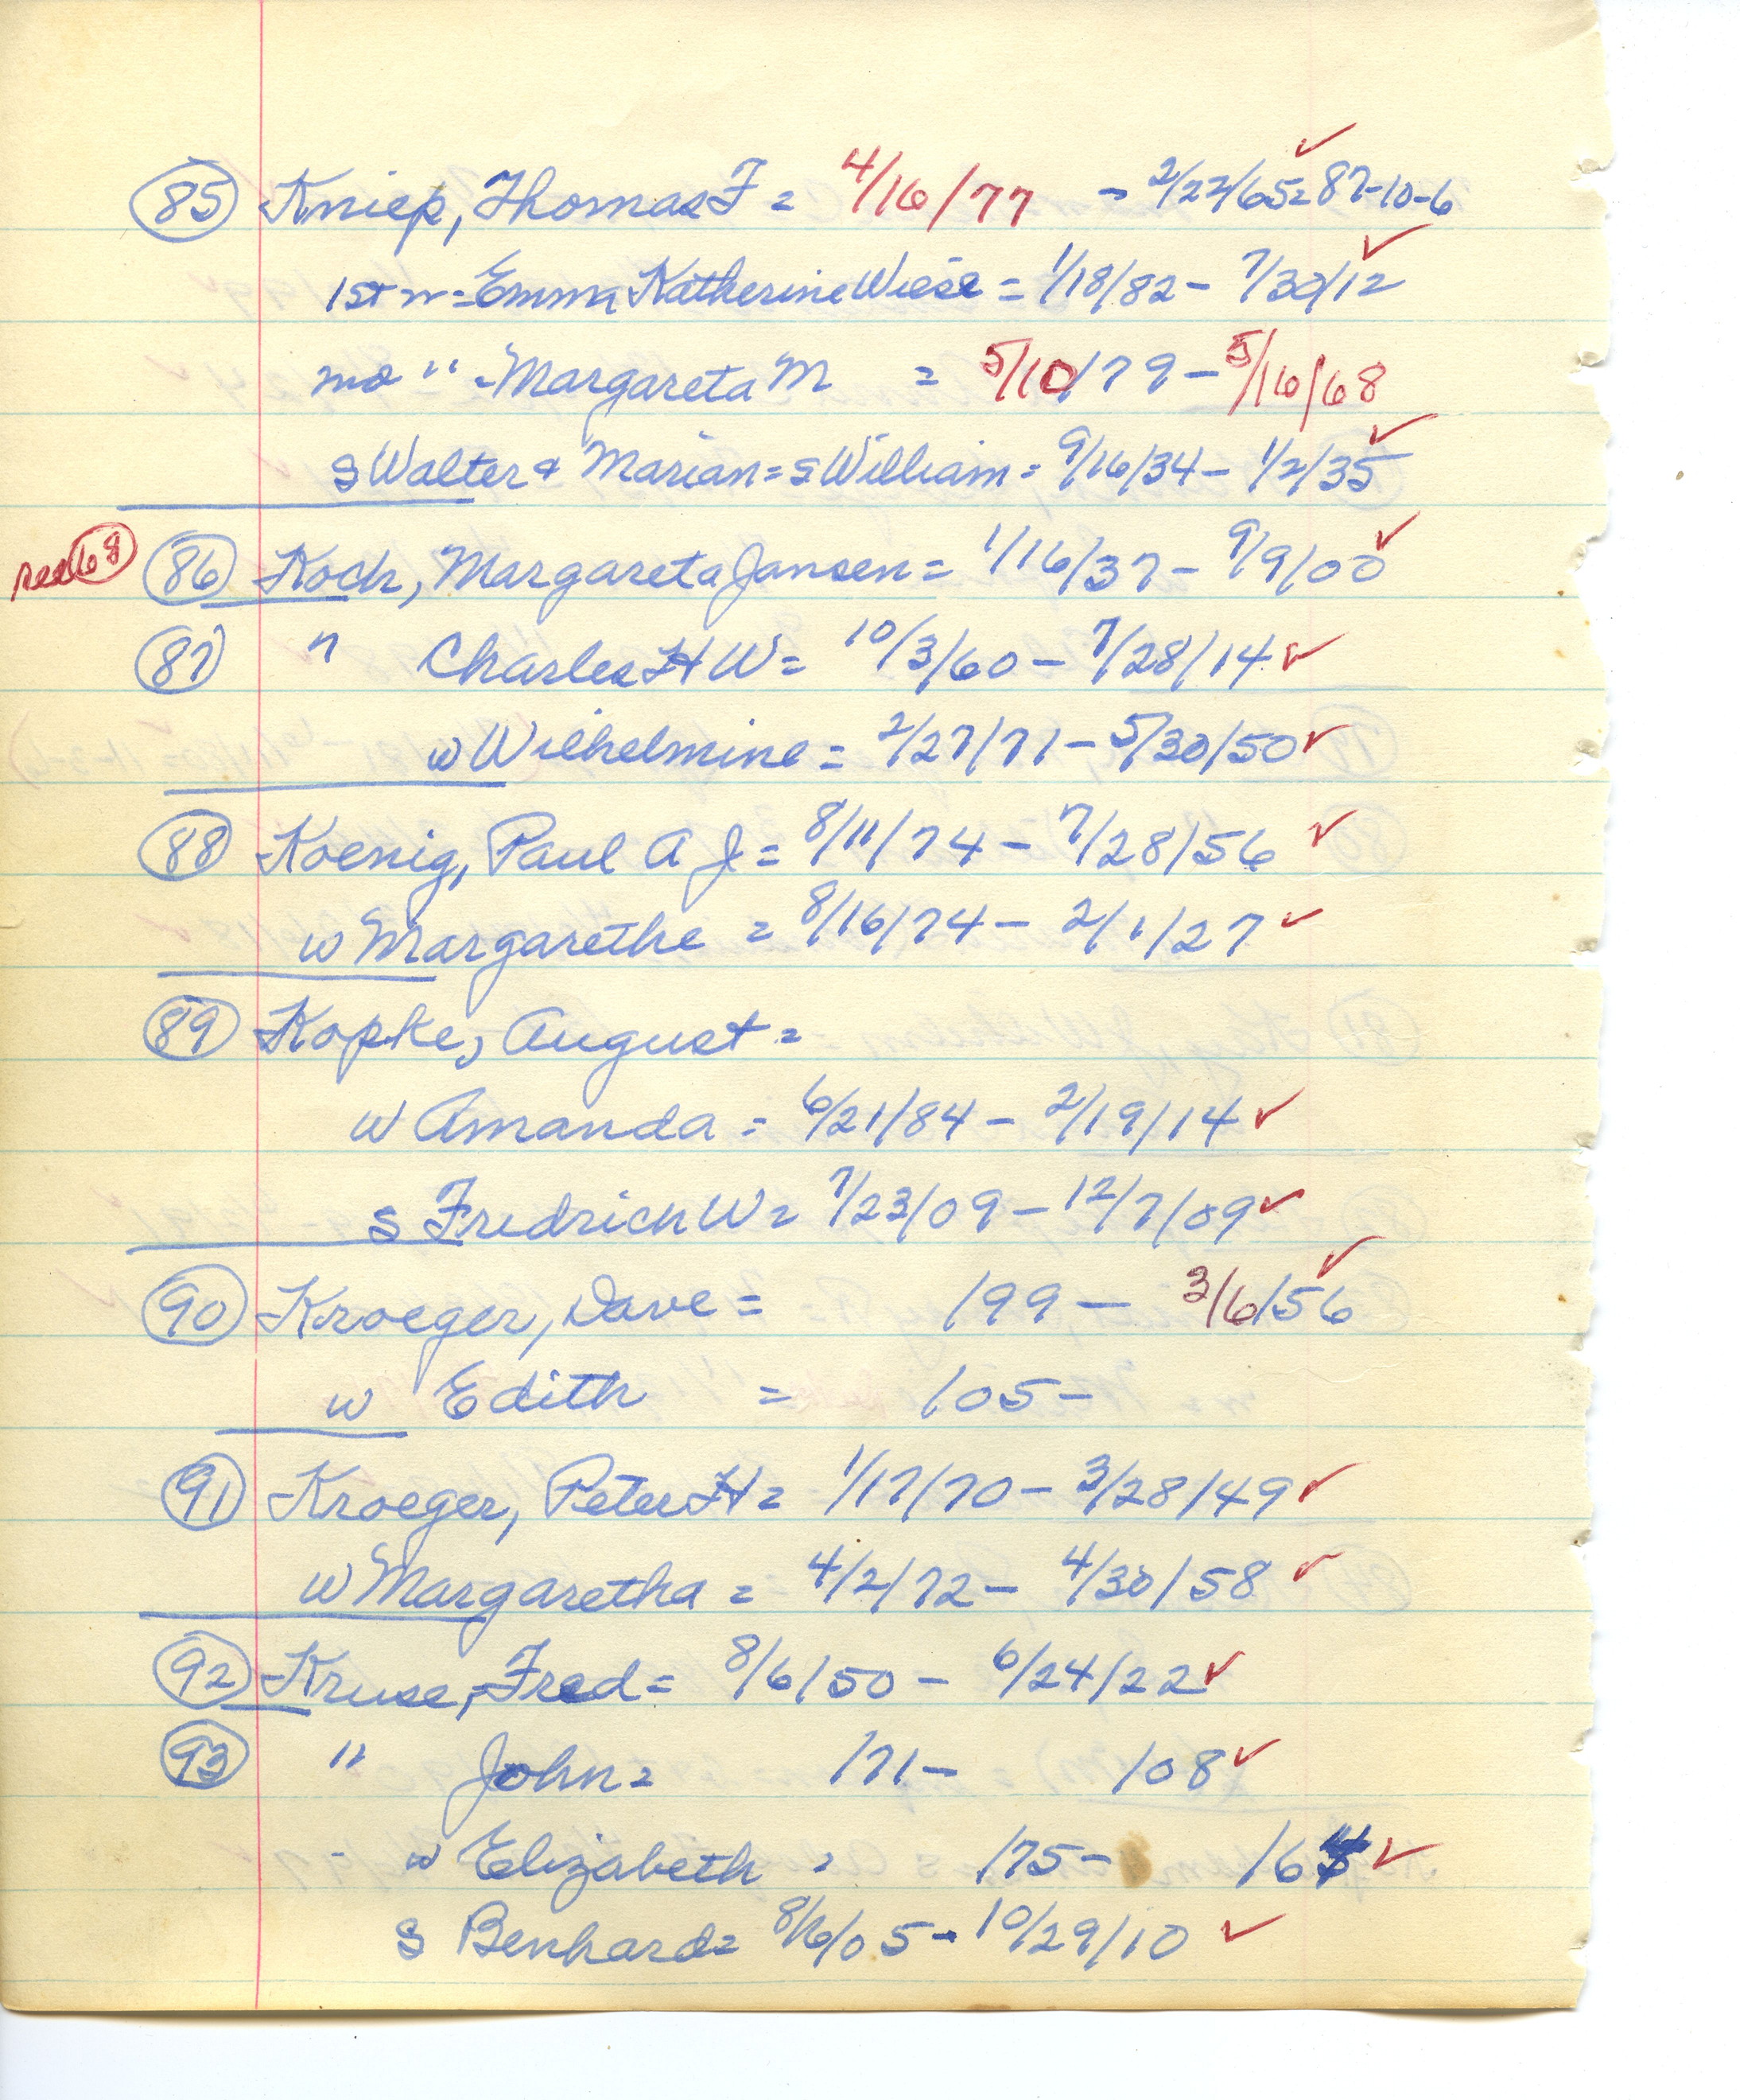 85 Kniep, Thomas F = 4/16/77 - 2/22/65 = 87-10-6
1st w = Emma Katherine Wiese = 1/18/82 - 7/30/12
" = Margareta M = 5/10/79 - 5/16/68
s Walter & Marian = s William = 9/16/34 - 1/2/35
see 68 86 Koch, Margareta Jansen = 1/16/37 - 9/9/00
87 " Charles H W = 10/3/60 - 7/28/14
w Wilhelmine = 2/27/71 - 5/30/50
88 Koenig, Paul A J = 8/11/74 - 7/28/56
w Margarethe = 8/16/74 - 2/1/27
89 Kopke, August =
w Amanda = 6/21/84 - 2/19/14
s Fredrich W = 7/23/09 - 12/7/09
90 Kroeger, Dave = /99 - 3/6/56
w Edith = /05 -
91 Kroeger, Peter H = 1/17/70 - 3/28/49
w Margaretha = 4/2/72 - 4/30/58
92 Kruse, Fred = 8/6/50 - 6/24/22
93 " John = /71 - /08
w Elizabeth = /75 - /64
s Benhard = 8/6/05 - 10/29/10